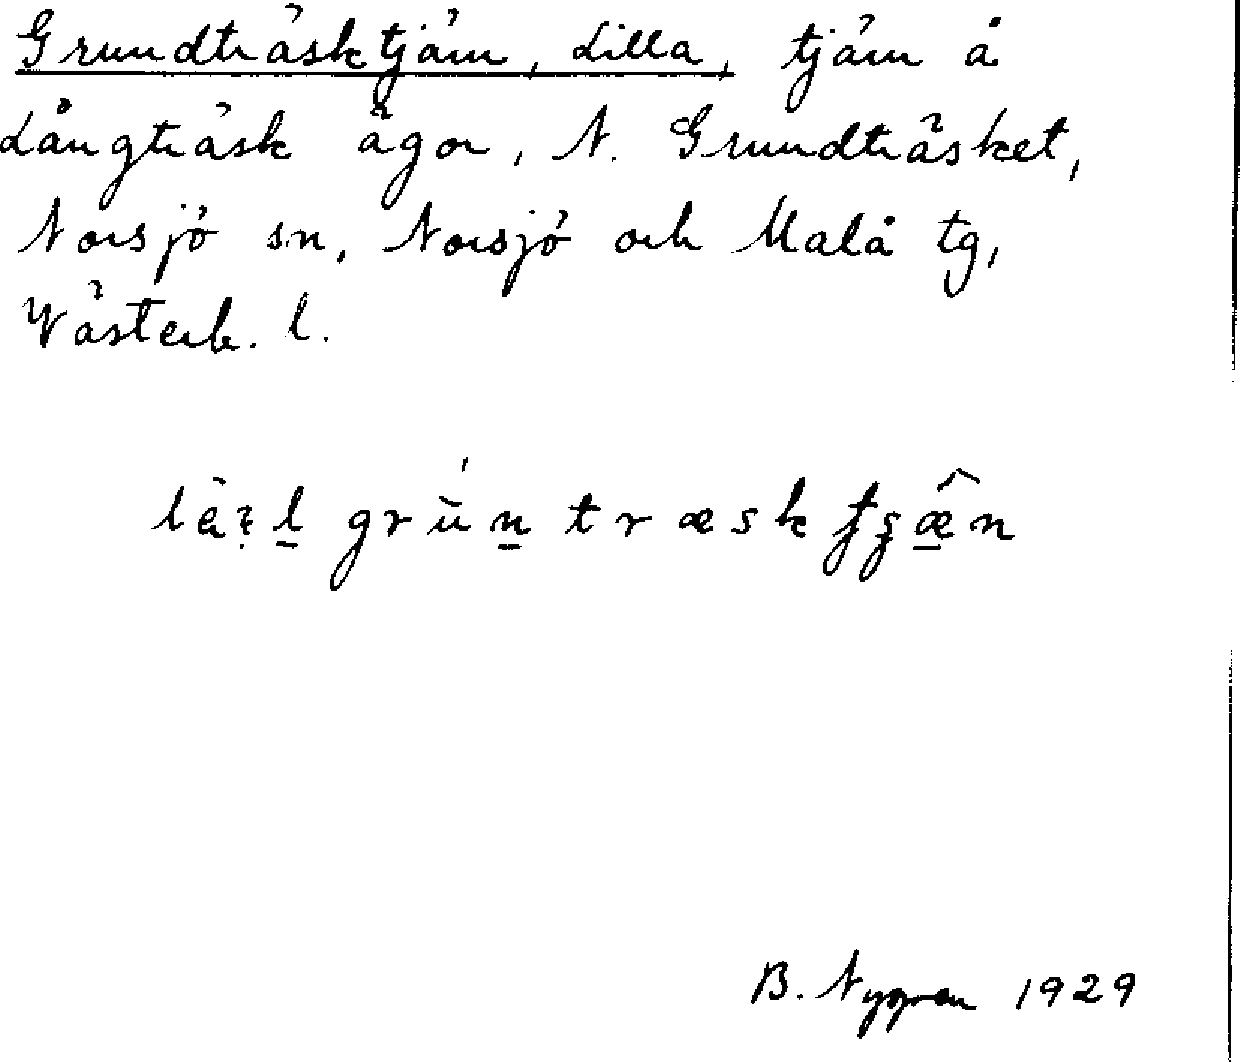 Grundträsktjärn, Lilla, tjärn å
Långträsk ägor, N. Grundträsket,
Norsjö sn, Norsjö och Malå tg,
Västerb. l.
grùn træsk
B. Nygren 1929